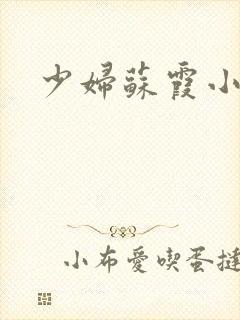 少婦蘇霞小
小布愛喫蛋撻